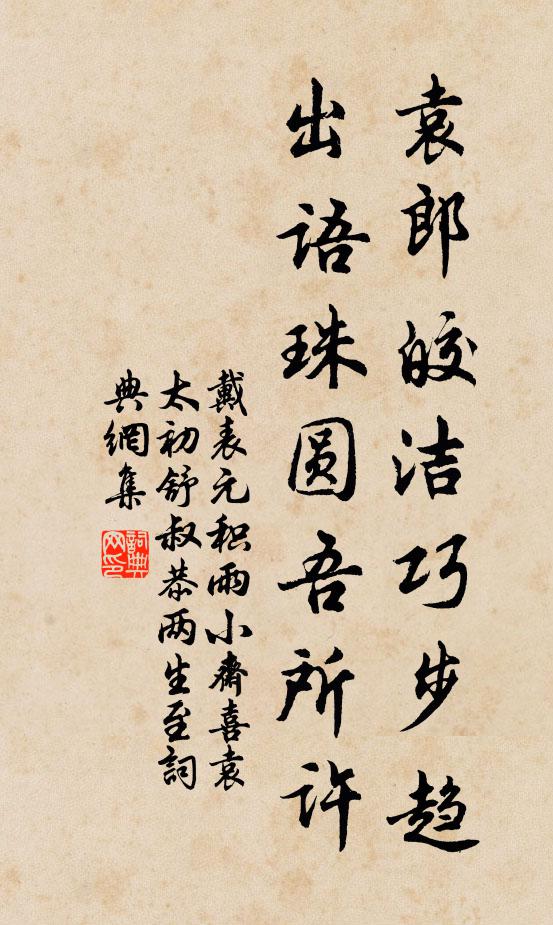 袁郎皎洁巧步趋
出语珠圆吾所许
戴表元积雨小斋喜袁
太初舒叔恭两生至詞
典網集
詞典
网印